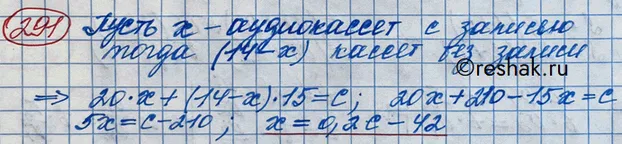 291 Пусть x - аудиокассет с записью
тогда (14-x) кассет без записи
©reshak.ru
⇒ 20·x+(14-x)·15=c; 20x+210-15x=c
5x=c-210; x=0,2c-42